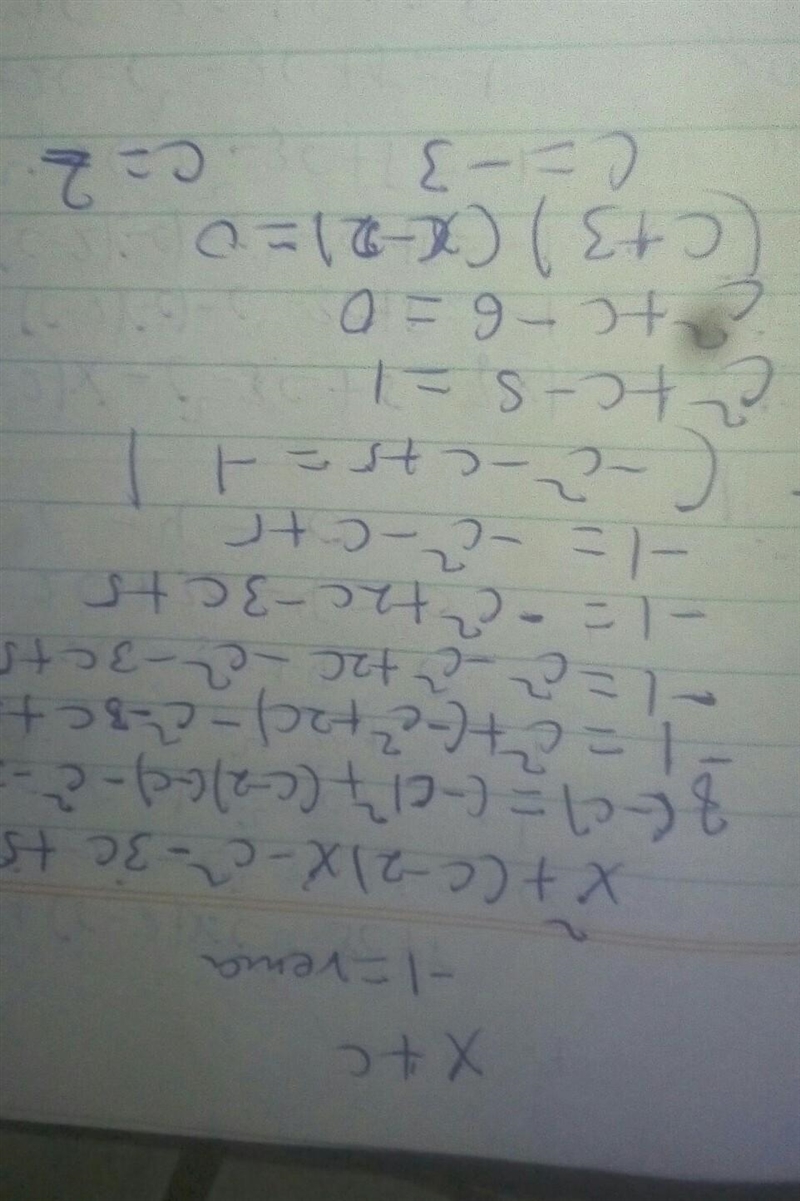 x + c
-1 = rema
x² + (c-2)x - c² - 3c + 5
f(-c) = (-c)² + (c-2)(-c) - c² -
-1 = c² + (-c² + 2c) - c² - 3c +
-1 = c² - c² + 2c - c² - 3c + 5
-1 = -c² + 2c - 3c + 5
-1 = -c² - c + 5
( -c² - c + 5 = -1 )
c² + c - 5 = 1
c² + c - 6 = 0
(c+3) (x-2) = 0
c = -3 c = 2